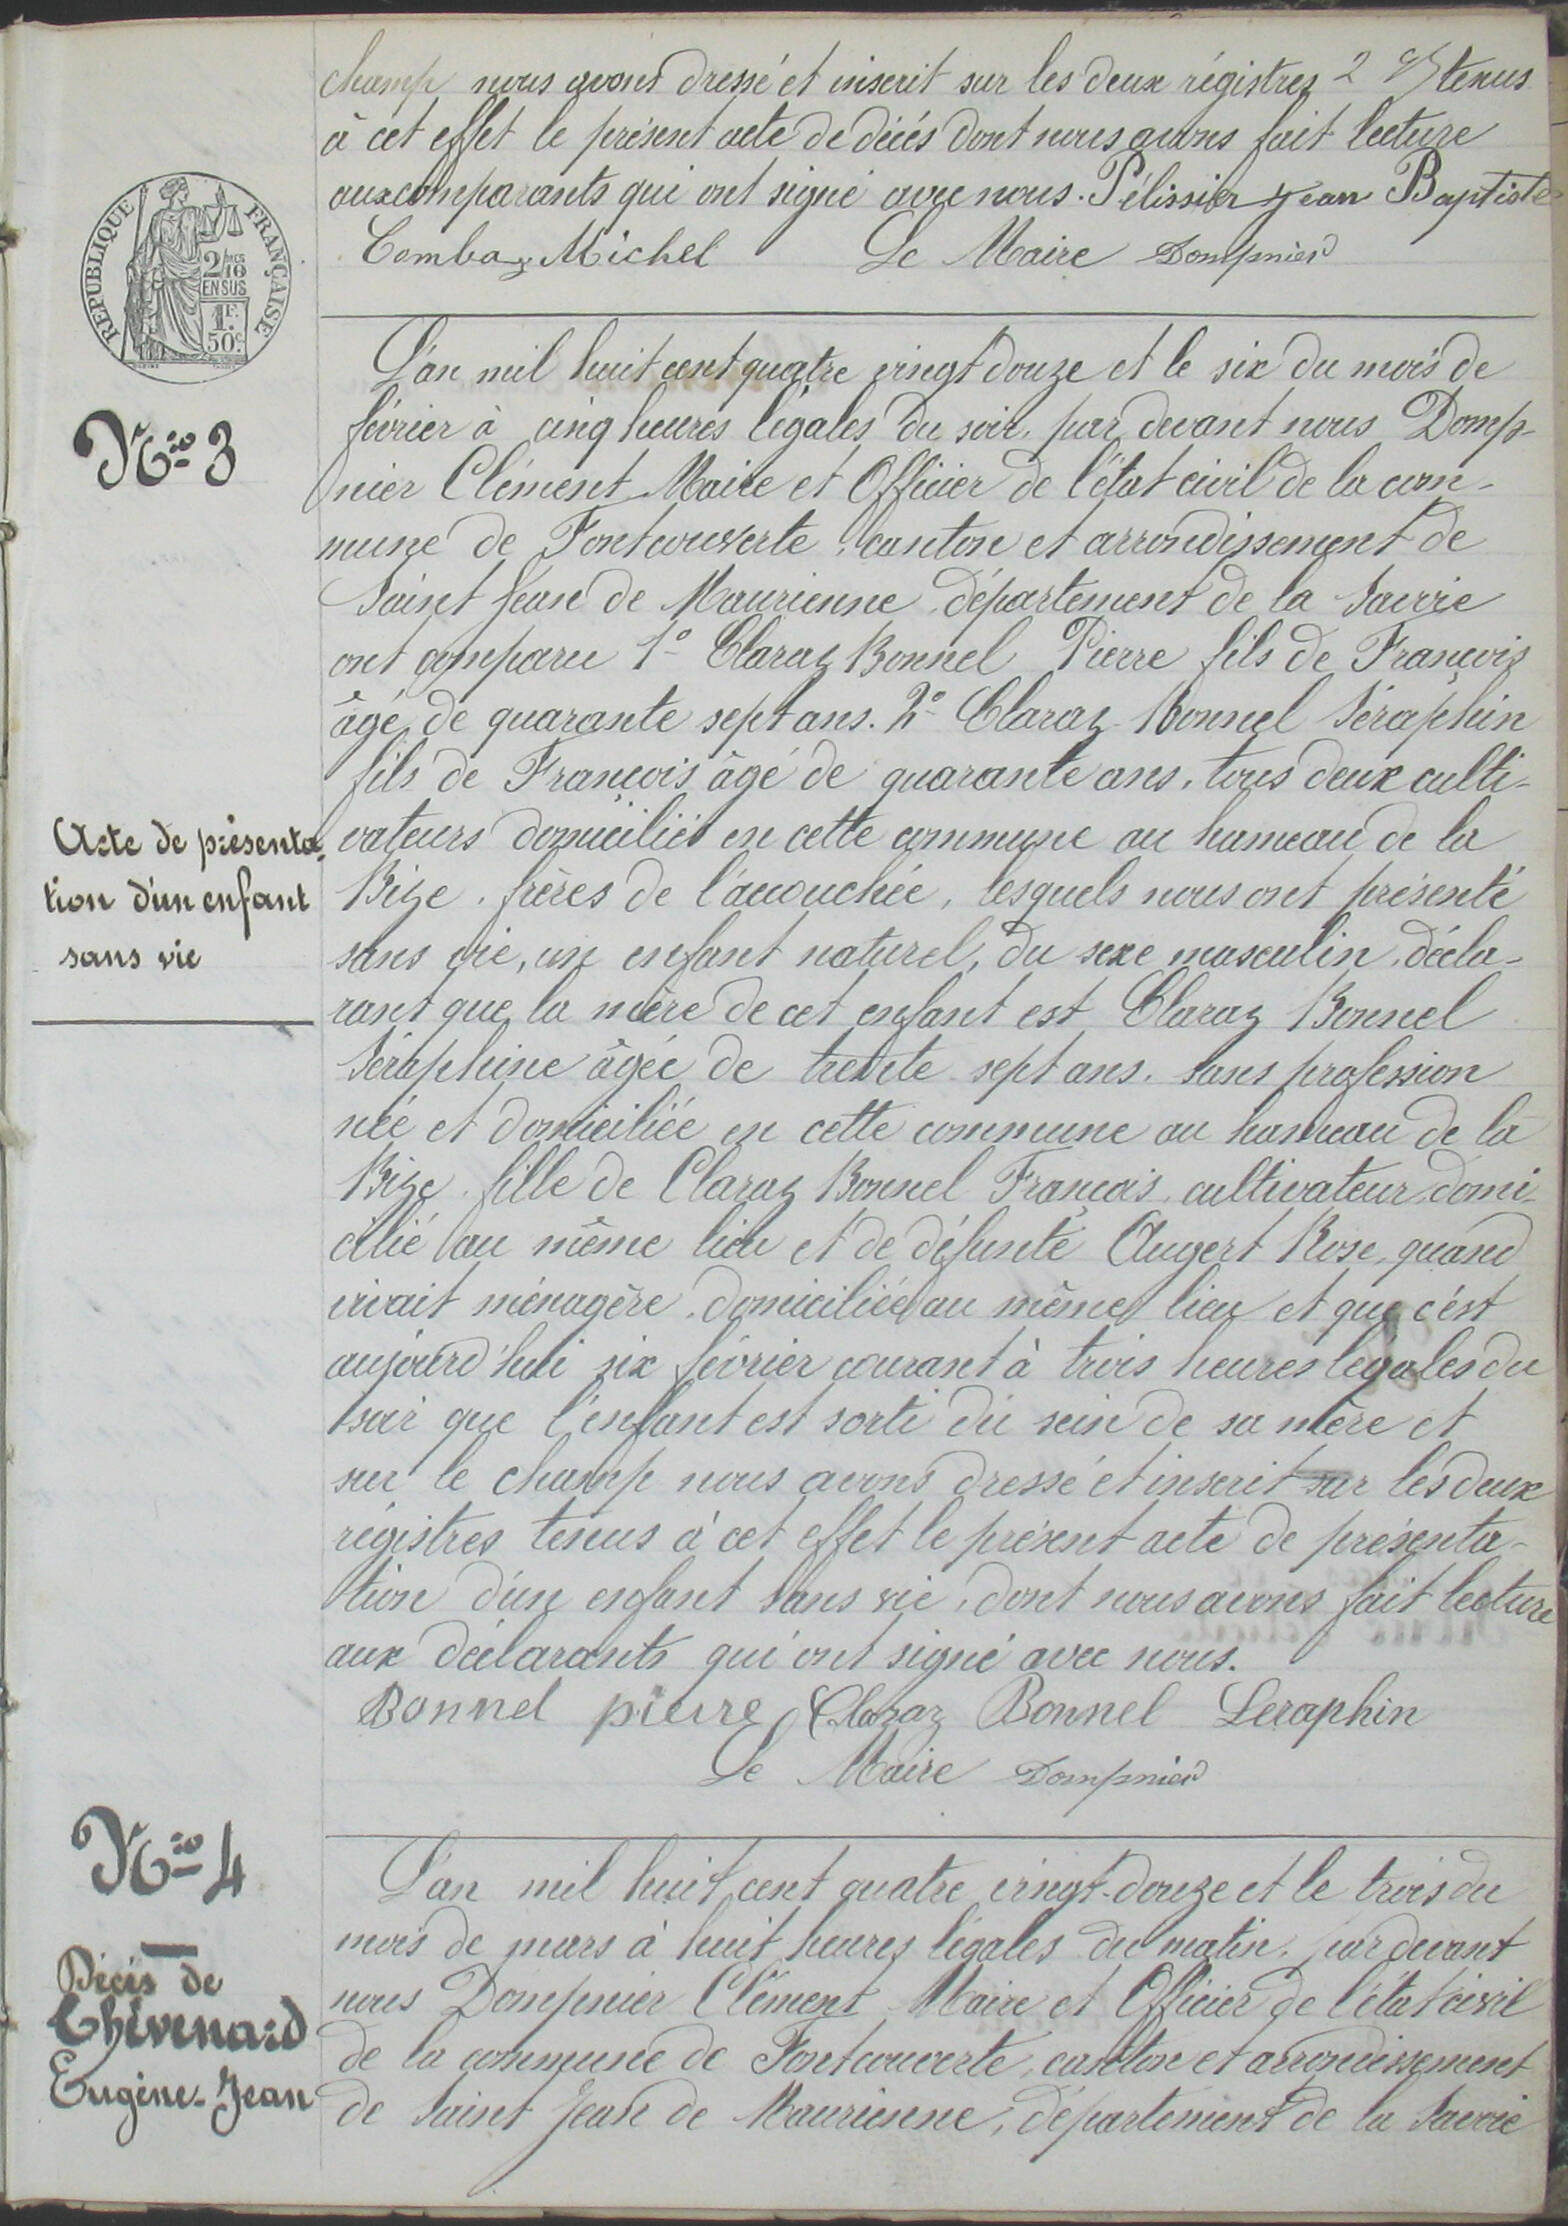 champ nous avons dressé et inscrit sur les deux régistres 2 tenus
à cet effet le présent acte de décés dont nous avons fait lecture
aux comparants qui ont signé avec nous. Pélissier Jean Baptiste
Combaz Michel Le Maire Dompnier
RÉPUBLIQUE FRANÇAISE
2/10
EN SUS
1F.
50c.
Nro 3
Acte de présenta-
tion d'un enfant
sans vie
L'an mil huit cent quatre vingt douze et le six du mois de
février à cinq heures légales du soir, par devant nous Domp-
nier Clément Maire et Officier de l'état civil de la com-
mune de Fontcouverte, canton et arrondissement de
Saint Jean de Maurienne, département de la Savoie
ont comparu 1º Claraz Bonnel Pierre fils de François
âgé de quarante sept ans. 2º Claraz Bonnel Séraphin
fils de François âgé de quarante ans, tous deux culti-
vateurs domiciliés en cette commune au hameau de la
Bize, frères de l'accouchée, lesquels nous ont présenté
sans vie, un enfant naturel, du sexe masculin, décla-
rant que la mère de cet enfant est Claraz Bonnel
Séraphine âgée de trente sept ans, sans profession
née et domiciliée en cette commune au hameau de la
Bize, fille de Claraz Bonnel François, cultivateur domi-
cilié au même lieu et de défunte Augert Rose, quand
vivait ménagère, domiciliée au même lieu et que c'est
aujourd'hui six février courant à trois heures légales du
soir que l'enfant est sorti du sein de sa mère et
sur le champ nous avons dressé et inscrit sur les deux
régistres tenus à cet effet le présent acte de présenta-
tion d'un enfant sans vie, dont nous avons fait lecture
aux déclarants qui ont signé avec nous.
Bonnel pierre Claraz Bonnel Seraphin
Le Maire Dompnier
Nro 4
Décés de
Thévenard
Eugène-Jean
L'an mil huit cent quatre vingt-douze et le trois du
mois de mars à huit heures légales du matin, par devant
nous Dompnier Clément Maire et Officier de l'état civil
de la commune de Fontcouverte, canton et arrondissement
de Saint Jean de Maurienne, département de la Savoie